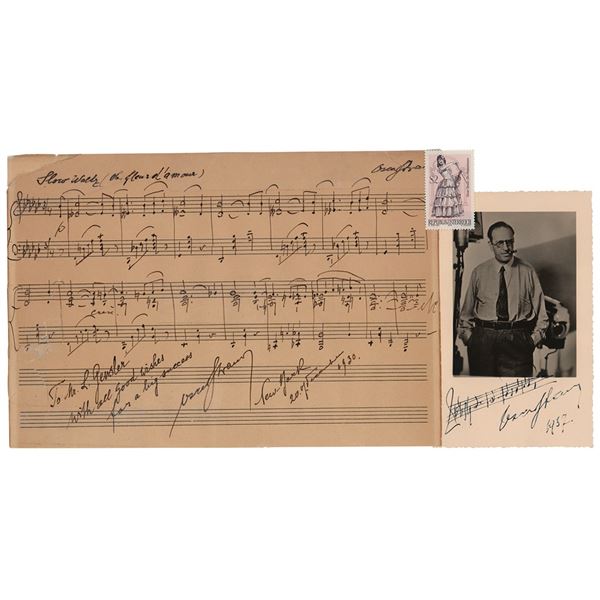 Slow Waltz (Oh, fleur d'amour)
Oscar Straus
REPUBLIK ÖSTERREICH
To Mr. L. Gensler
with all good wishes
for a big success
Oscar Straus
New York
1930.
Oscar Straus
1937.